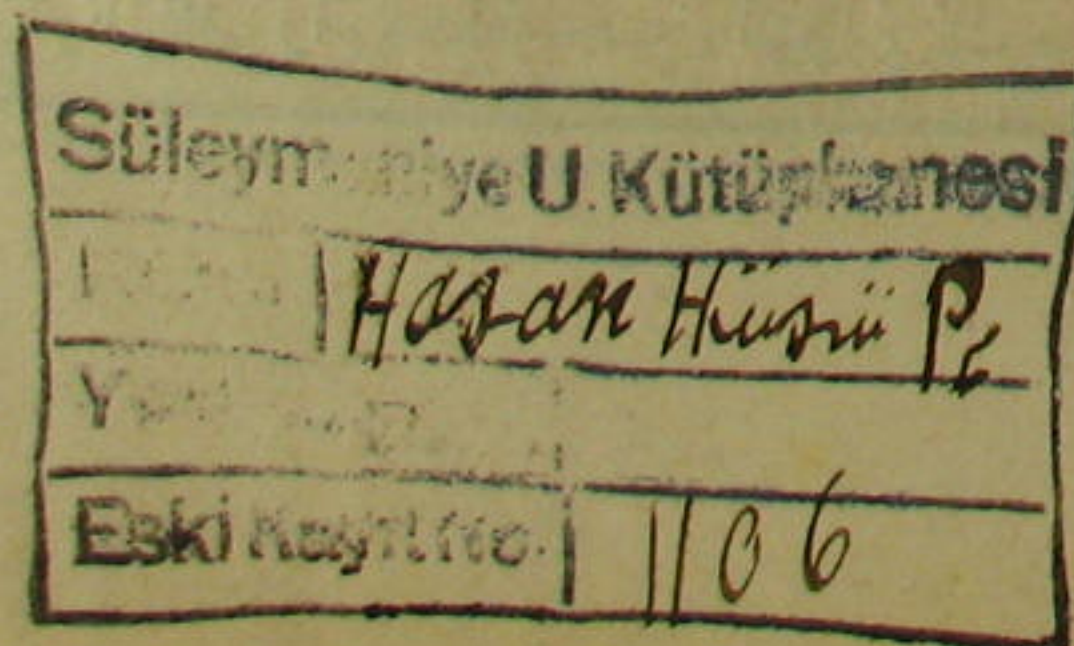 Süleymaniye U. Kütüphanesi
Hasan Hüsnü P.
Eski Kayıt No. 1106